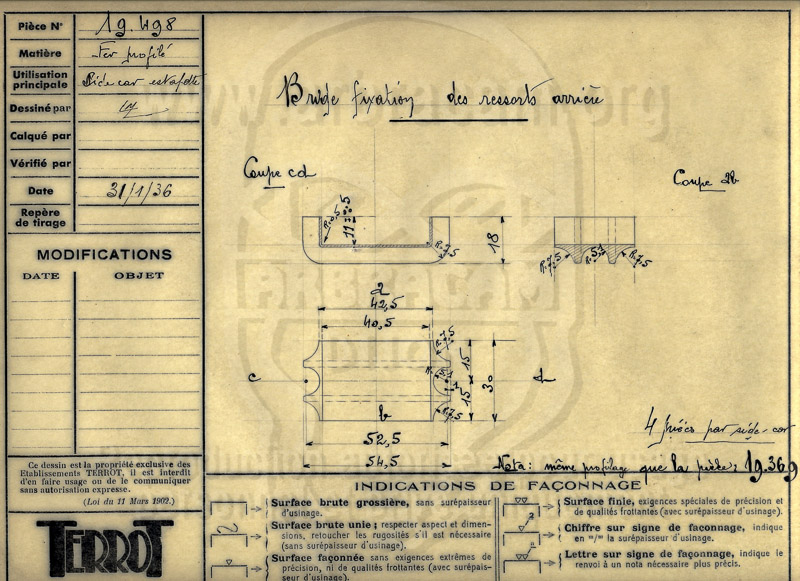 Pièce N° 19.498
Matière Fer profilé
Utilisation principale Side car estafette
Dessiné par
Calqué par
Vérifié par
Date 31/1/36
Repère de tirage
MODIFICATIONS
DATE OBJET
Ce dessin est la propriété exclusive des
Etablissements TERROT, il est interdit
d'en faire usage ou de le communiquer
sans autorisation expresse.
(Loi du 11 Mars 1902.)
TERROT
Bride fixation des ressorts arrière
Coupe cd
Coupe ab
R.0,5
11
R.7,5
18
R.7,5
R.5,1
R.7,5
a
42,5
40,5
R.7,5
15
c
d
30
15
R.7,5
b
52,5
54,5
4 pièces par side-car
Nota: même profilage que la pièce: 19.369
INDICATIONS DE FAÇONNAGE
Surface brute grossière, sans surépaisseur
d'usinage.
Surface brute unie; respecter aspect et dimen-
sions, retoucher les rugosités s'il est nécessaire
(sans surépaisseur d'usinage).
Surface façonnée sans exigences extrêmes de
précision, ni de qualités frottantes (avec surépais-
seur d'usinage).
Surface finie, exigences spéciales de précision et
de qualités frottantes (avec surépaisseur d'usinage).
Chiffre sur signe de faconnage, indique
en "/" la surépaisseur d'usinage.
Lettre sur signe de façonnage, indique le
renvoi à un nota nécessaire plus précis.